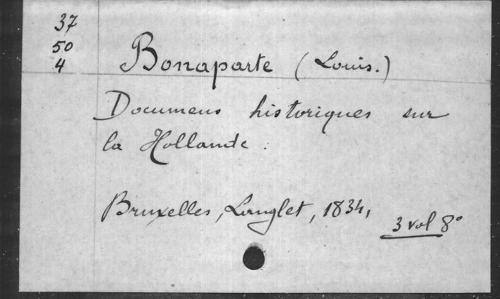 37
50
4
Bonaparte (Louis.)
Documens historiques sur
la Hollande.
Bruxelles, Langlet, 1834,
3 vol 8°